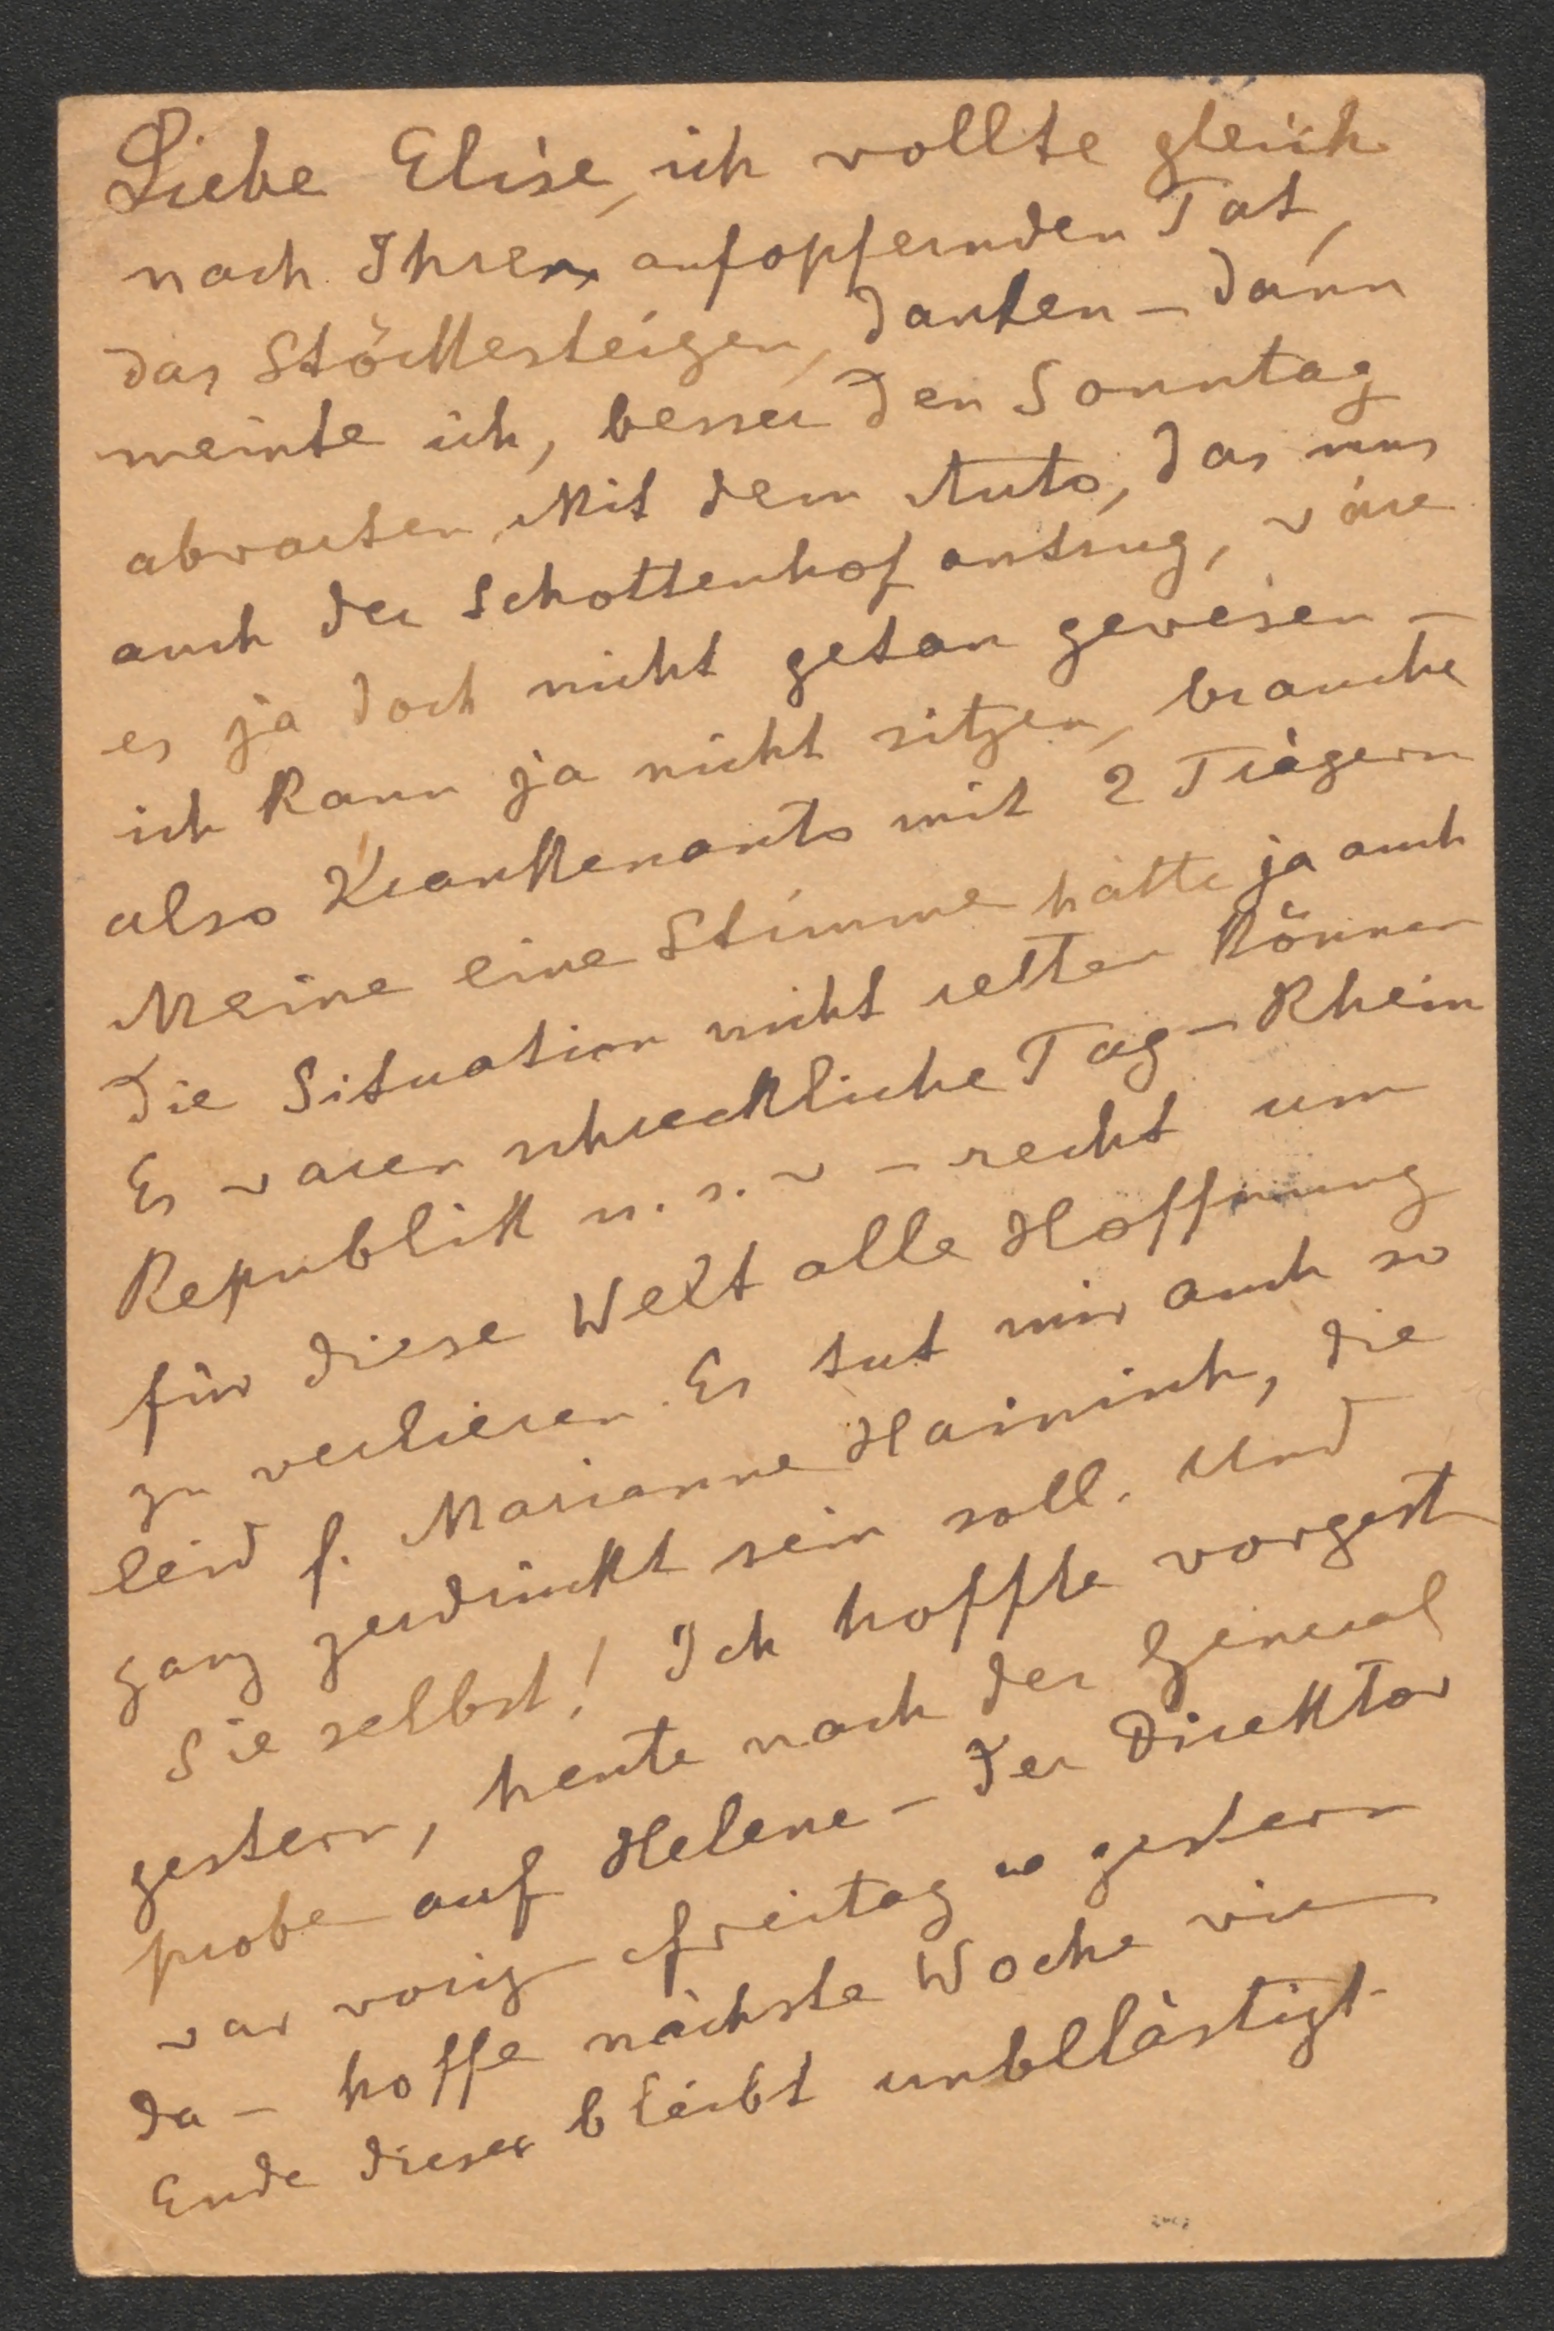 Liebe Elise, ich wollte gleich
nach Ihrer aufopfernden Tat,
das Stöckesteigen, danken – dann
meinte ich, besser den Sonntag
abwarten. Mit dem Auto, das uns
auch der Schottenhof antrug, wäre
es ja doch nicht getan gewesen –
ich kann ja nicht sitzen, brauche
also Krankenauto mit 2 Trägern
Meine eine Stimme hätte ja auch
die Situation nicht retten können
Es waren schreckliche Tag – Rhein
Republik u. s. w – recht um
für diese Welt alle Hoffnung
zu verlieren. Es tut mir auch so
leid f. Marianne Hainisch, die
ganz zerdrückt sein soll. Und
Sie selbst! Ich hoffte vorgest
gestern, heute nach der General
probe auf Helene – der Direktor
war vorig Freitag u gestern
da – hoffe nächste Woche wie
Ende dieser bleibt unbelästigt.